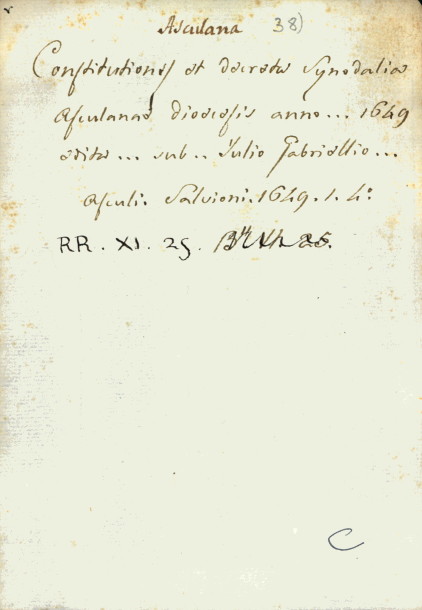 Asculana 38)
Constitutiones et decreta Synodalia
Asculanae dioecesis anno... 1649
edita... sub.. Iulio Gabriellio...
Asculi. Salvioni. 1649. 1. 4°.
RR. XI. 25.
C